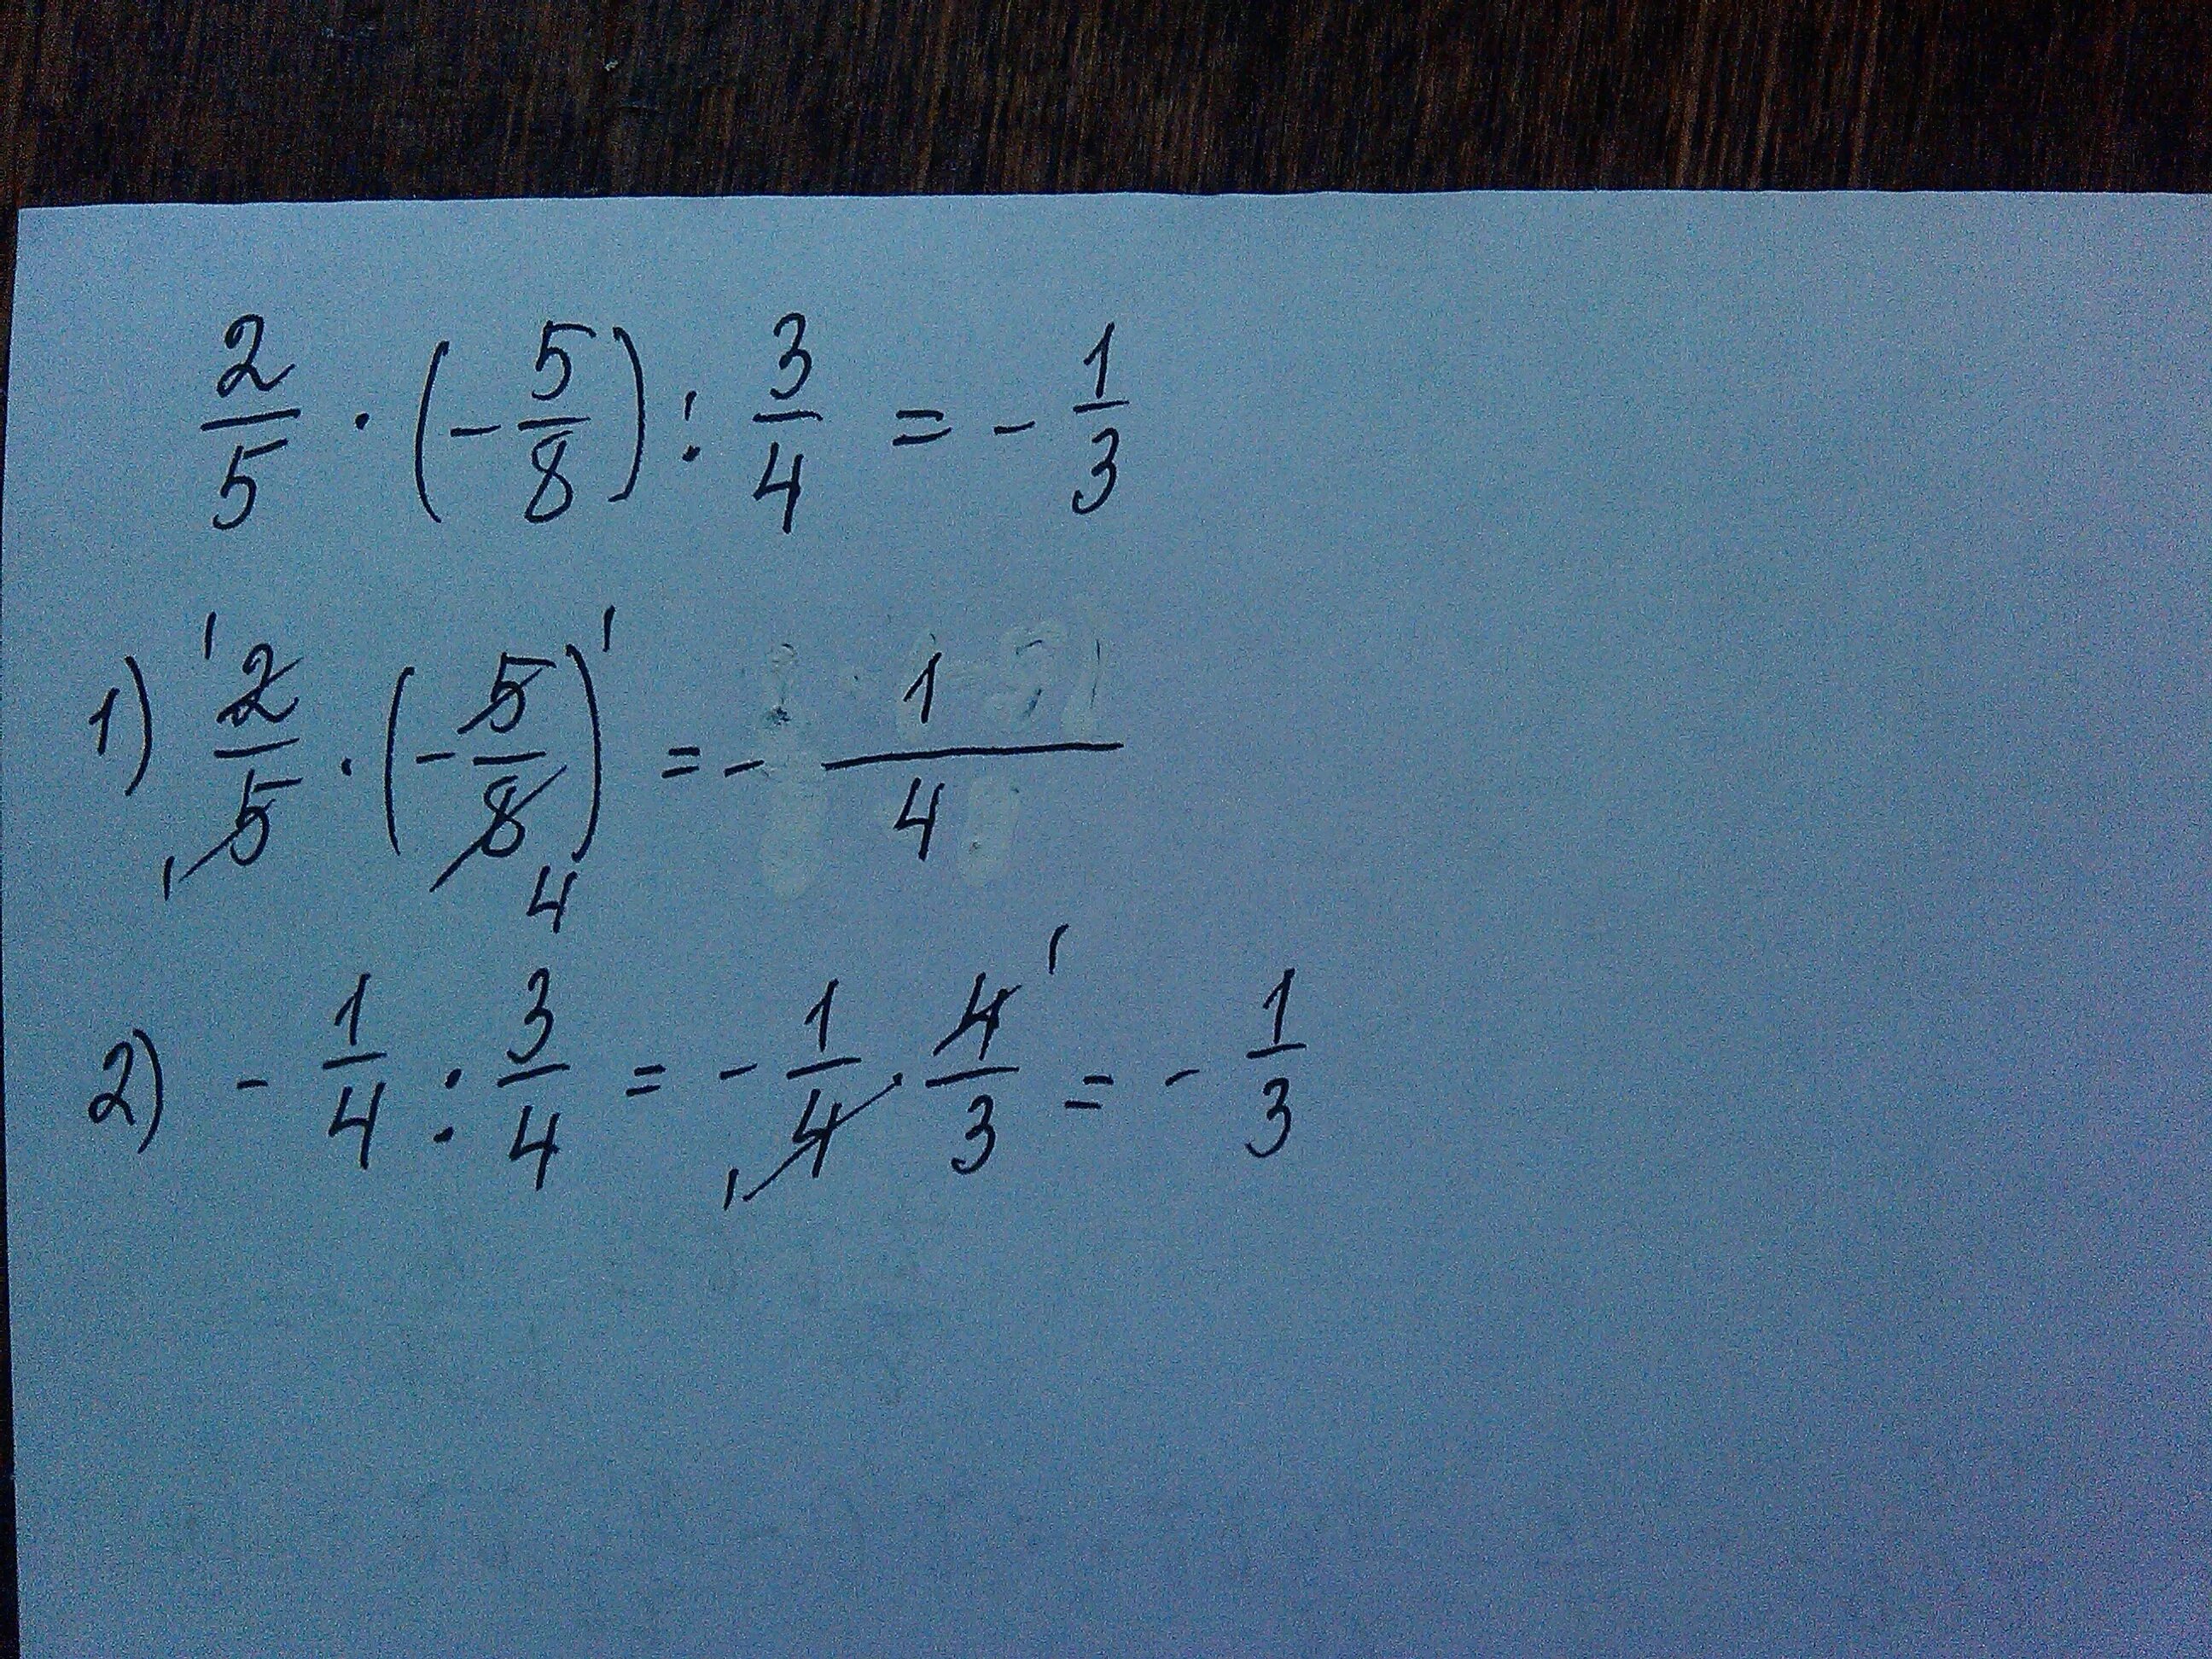 2/5 · (-5/8) : 3/4 = - 1/3
1) 2/5 · (-5/8) = - 1/4
2) - 1/4 : 3/4 = - 1/4 · 4/3 = - 1/3